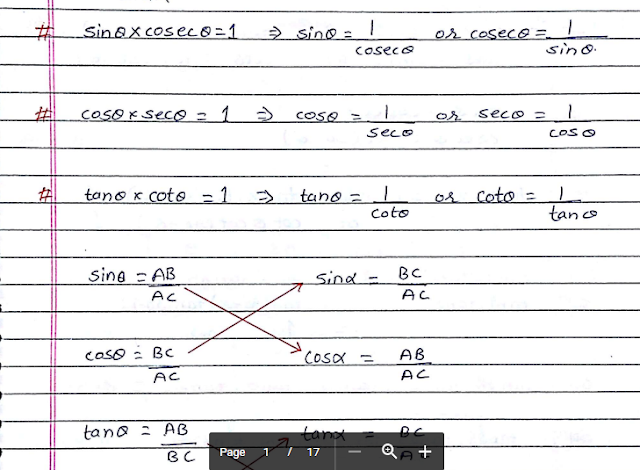 # sinθ×cosecθ=1 ⇒ sinθ = 1/cosecθ or cosecθ = 1/sinθ.
# cosθ×secθ = 1 ⇒ cosθ = 1/secθ or secθ = 1/cosθ
# tanθ×cotθ = 1 ⇒ tanθ = 1/cotθ or cotθ = 1/tanθ
sinθ = AB/AC sinα = BC/AC
cosθ = BC/AC cosα = AB/AC
tanθ = AB/BC tanα = BC/A
Page 1 / 17 — +